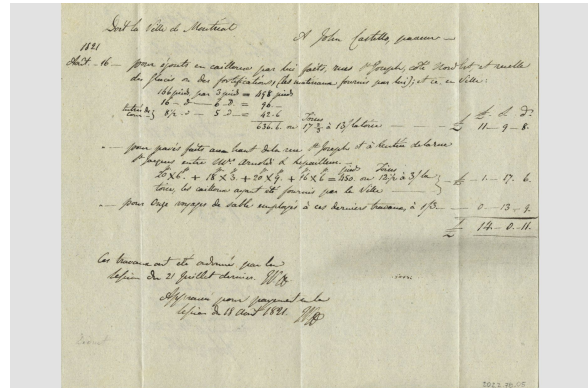 Doit la Ville de Montreal
A John Costello, paveur —
1821
Août - 16 — pour égouts en cailloux par lui faits, rue St. Joseph, côté Nord Est et ruelle
du glacis ou des fortifications, (les materiaux fournis par lui); et ce, en Ville:
166 pieds, par 3 pieds = 498 pieds
16 - D° — 6 - D° = 96 -
8½ - D° — 5 - D° = 42.6
636.6 ou 17⅔ Toises à 13/ la toise — £ 11 - 9 - 8.
- pour pavés faits au haut de la rue St. Joseph et à l'entrée de la rue
St. Jacques entre Mrs. Arnoldi &
20 x 6. + 18 x 3. + 20 x 9. + 16 x 6 = 450. ou 12½ Toises à 3/ la
toise, les cailloux ayant été fournis par la Ville — £ - 1 - 17. 6.
- pour onze voyages de sable employés à ces derniers travaux, à 1/3 — 0 - 13 - 9.
£ 14 - 0 - 11.
Ces travaux ont été ordonnés par la
session du 21 Juillet dernier.
Approuvé pour payement en la
session du 18 Août 1821.
2022.70.05